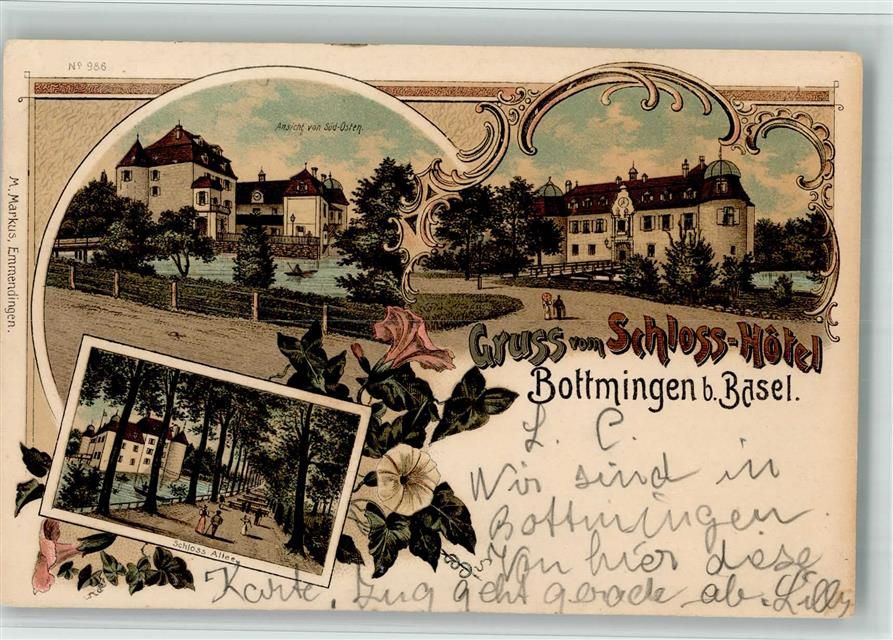 Nº 986
Ansicht von Süd-Osten.
M. Markus, Emmendingen.
Gruss vom Schloss-Hôtel
Bottmingen b. Basel.
Schloss Allee
L. C.
Wir sind in
Bottmingen.
Von hier diese
Karte, Zug geht gerade ab. Lilly